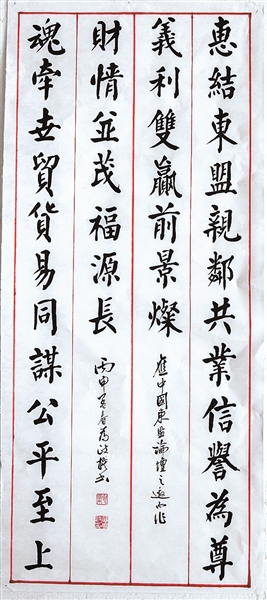 惠結東盟親鄰共業信譽為尊
義利雙贏前景燦
應中國東盟論壇之邀而作
魂牽世貿貨易同謀公平至上
財情並茂福源長
丙申春